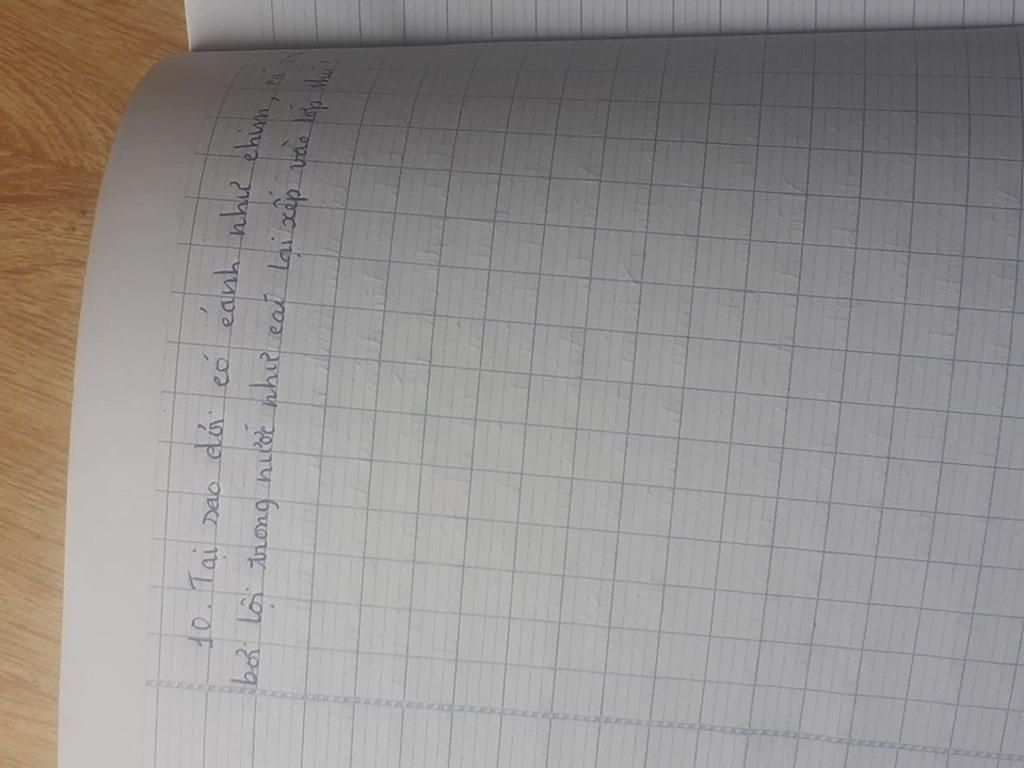 10. Tại sao dơi có cánh như chim, cá
bơi lội trong nước như cá lại xếp vào lớp thú